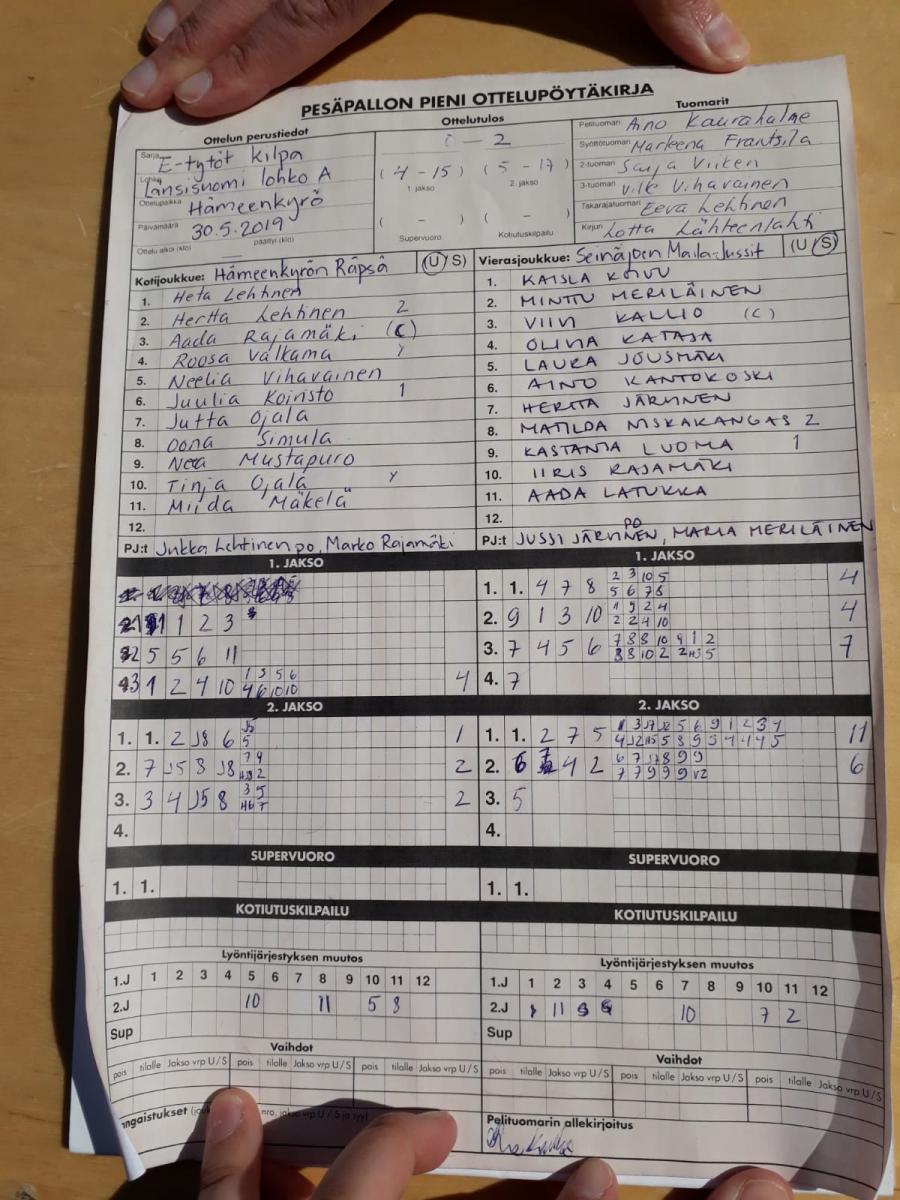 PESÄPALLON PIENI OTTELUPÖYTÄKIRJA
Ottelun perustiedot
Sarja E-tytöt kilpa
Lohko Länsisuomi lohko A
Ottelupaikka Hämeenkyrö
Päivämäärä 30.5.2019
Ottelu alkoi (klo) päättyi (klo)
Ottelutulos
0 - 2
(4 - 15) (5 - 17)
1. jakso 2. jakso
( - ) ( - )
Supervuoro Kotiutuskilpailu
Tuomarit
Pelituomari Aino Kaurahalme
Syöttötuomari Marleena Frantsila
2-tuomari Sarja Viiken
3-tuomari Ville Vihavainen
Takarajatuomari Eeva Lehtinen
Kirjuri Lotta Lähteenlahti
Kotijoukkue: Hämeenkyrön Räpsä (U/S)
1. Heta Lehtinen
2. Hertta Lehtinen 2
3. Aada Rajamäki (C)
4. Roosa Valkama Y
5. Neelia Vihavainen
6. Juulia Koivisto 1
7. Jutta Ojala
8. Oona Simula
9. Neea Mustapuro
10. Tinja Ojala Y
11. Miida Mäkelä
12.
PJ:t Jukka Lehtinen po, Marko Rajamäki
Vierasjoukkue: Seinäjoen Maila-Jussit (U/S)
1. KAISLA KOIVU
2. MINTTU MERILÄINEN
3. VIIVI KALLIO (C)
4. OLIVIA KATAJA
5. LAURA JOUSMÄKI
6. AINO KANTOKOSKI
7. HERTTA JÄRVINEN
8. MATILDA NISKAKANGAS 2
9. KASTANJA LUOMA 1
10. IIRIS RAJAMÄKI
11. AADA LATUKKA
12.
PJ:t JUSSI JÄRVINEN PO, MARIA MERILÄINEN
1. JAKSO
1 1 2 3
2 5 5 6 11
3 1 2 4 10 1 3 5 6 4
4 6 10 10
1. JAKSO
1. 1. 4 7 8 2 3 10 5 4
5 6 7 8
2. 9 1 3 10 1 9 2 4 4
2 2 4 10
3. 7 4 5 6 7 8 8 10 9 1 2 7
4. 7
2. JAKSO
1. 1. 2 J8 6 J5 1
5
2. 7 J5 8 J8 7 9 2
3. 3 4 J5 8 3 5 2
4.
2. JAKSO
1. 1. 2 7 5 11
2. 6 7 4 2 6 7 J7 8 9 9 6
7 7 9 9 9 V2
3. 5
4.
SUPERVUORO
1. 1.
SUPERVUORO
1. 1.
KOTIUTUSKILPAILU
KOTIUTUSKILPAILU
Lyöntijärjestyksen muutos
1.J 1 2 3 4 5 6 7 8 9 10 11 12
2.J 10 11 5 8
Sup
Lyöntijärjestyksen muutos
1.J 1 2 3 4 5 6 7 8 9 10 11 12
2.J 1 11 10 7 2
Sup
Vaihdot
pois tilalle Jakso vrp U/S pois tilalle Jakso vrp U/S pois tilalle Jakso vrp U/S
Vaihdot
pois tilalle Jakso vrp U/S pois tilalle Jakso vrp U/S pois tilalle Jakso vrp U/S
nro, jakso vrp U / S ja syy)
Pelituomarin allekirjoitus